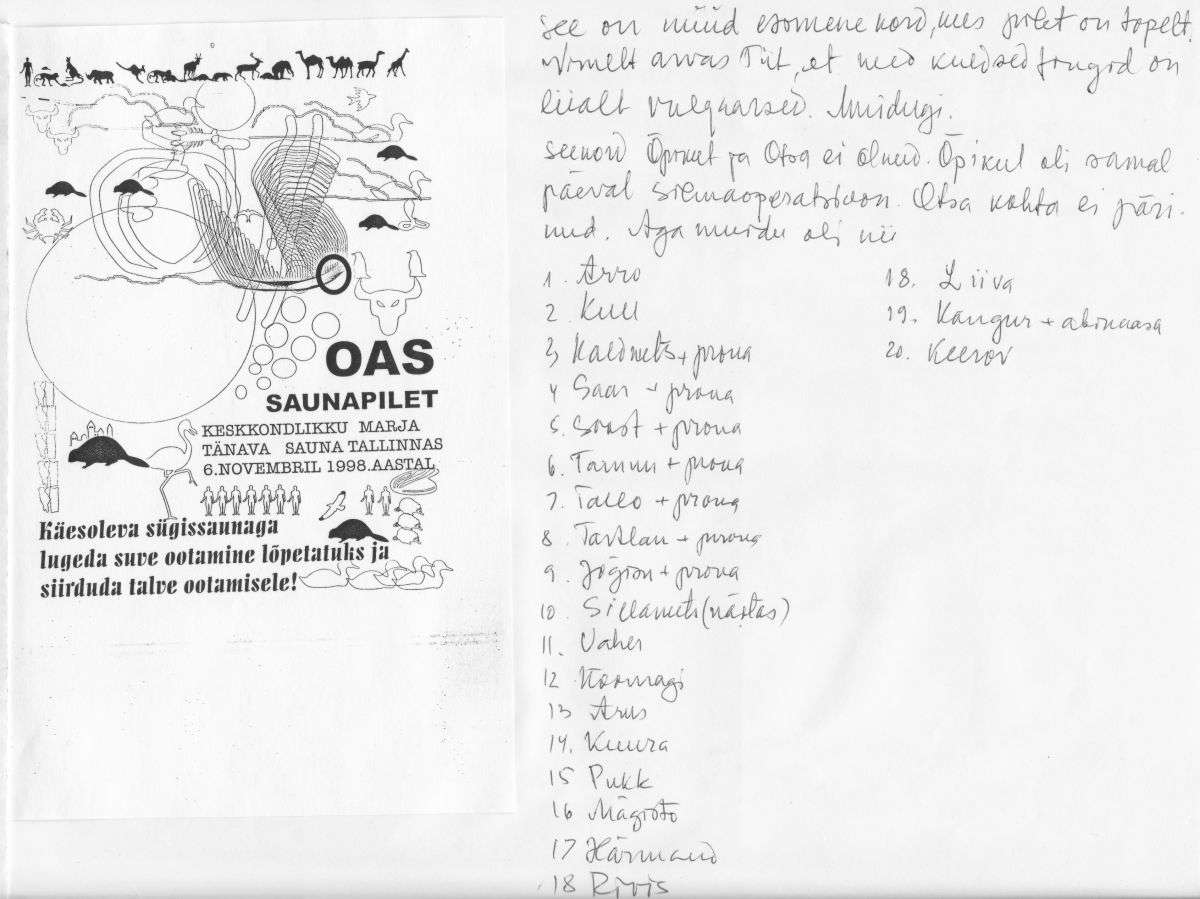 OAS
SAUNAPILET
KESKKONDLIKKU MARJA
TÄNAVA SAUNA TALLINNAS
6.NOVEMBRIL 1998.AASTAL
Käesoleva sügissaunaga
lugeda suve ootamine lõpetatuks ja
siirduda talve ootamisele!
See on nüüd esomene kord, kus pilet on topelt.
Nimelt arvas Tiit, et need kuldsed jrugod on
liialt vulgaarsed. Muidugi.
Seekord Õpikut ja Otsa ei olnud. Õpikul oli samal
päeval silmaoperatsioon. Otsa kohta ei päri-
nud. Aga muidu oli nii
1. Arro
2. Kull
3, Kaldmets + proua
4 Saar + proua
5. Soost + proua
6. Tamm + proua
7. Tallo + proua
8. Tartlan + proua
9. Jõgion + proua
10. Sillamets (näitas)
11. Vaher
12 Koomagi
13 Arus
14. Kuura
15 Pukk
16 Mägioto
17 Härmand
18 Rivis
18. Liiva
19. Kangur + abinaasa
20. Keerov